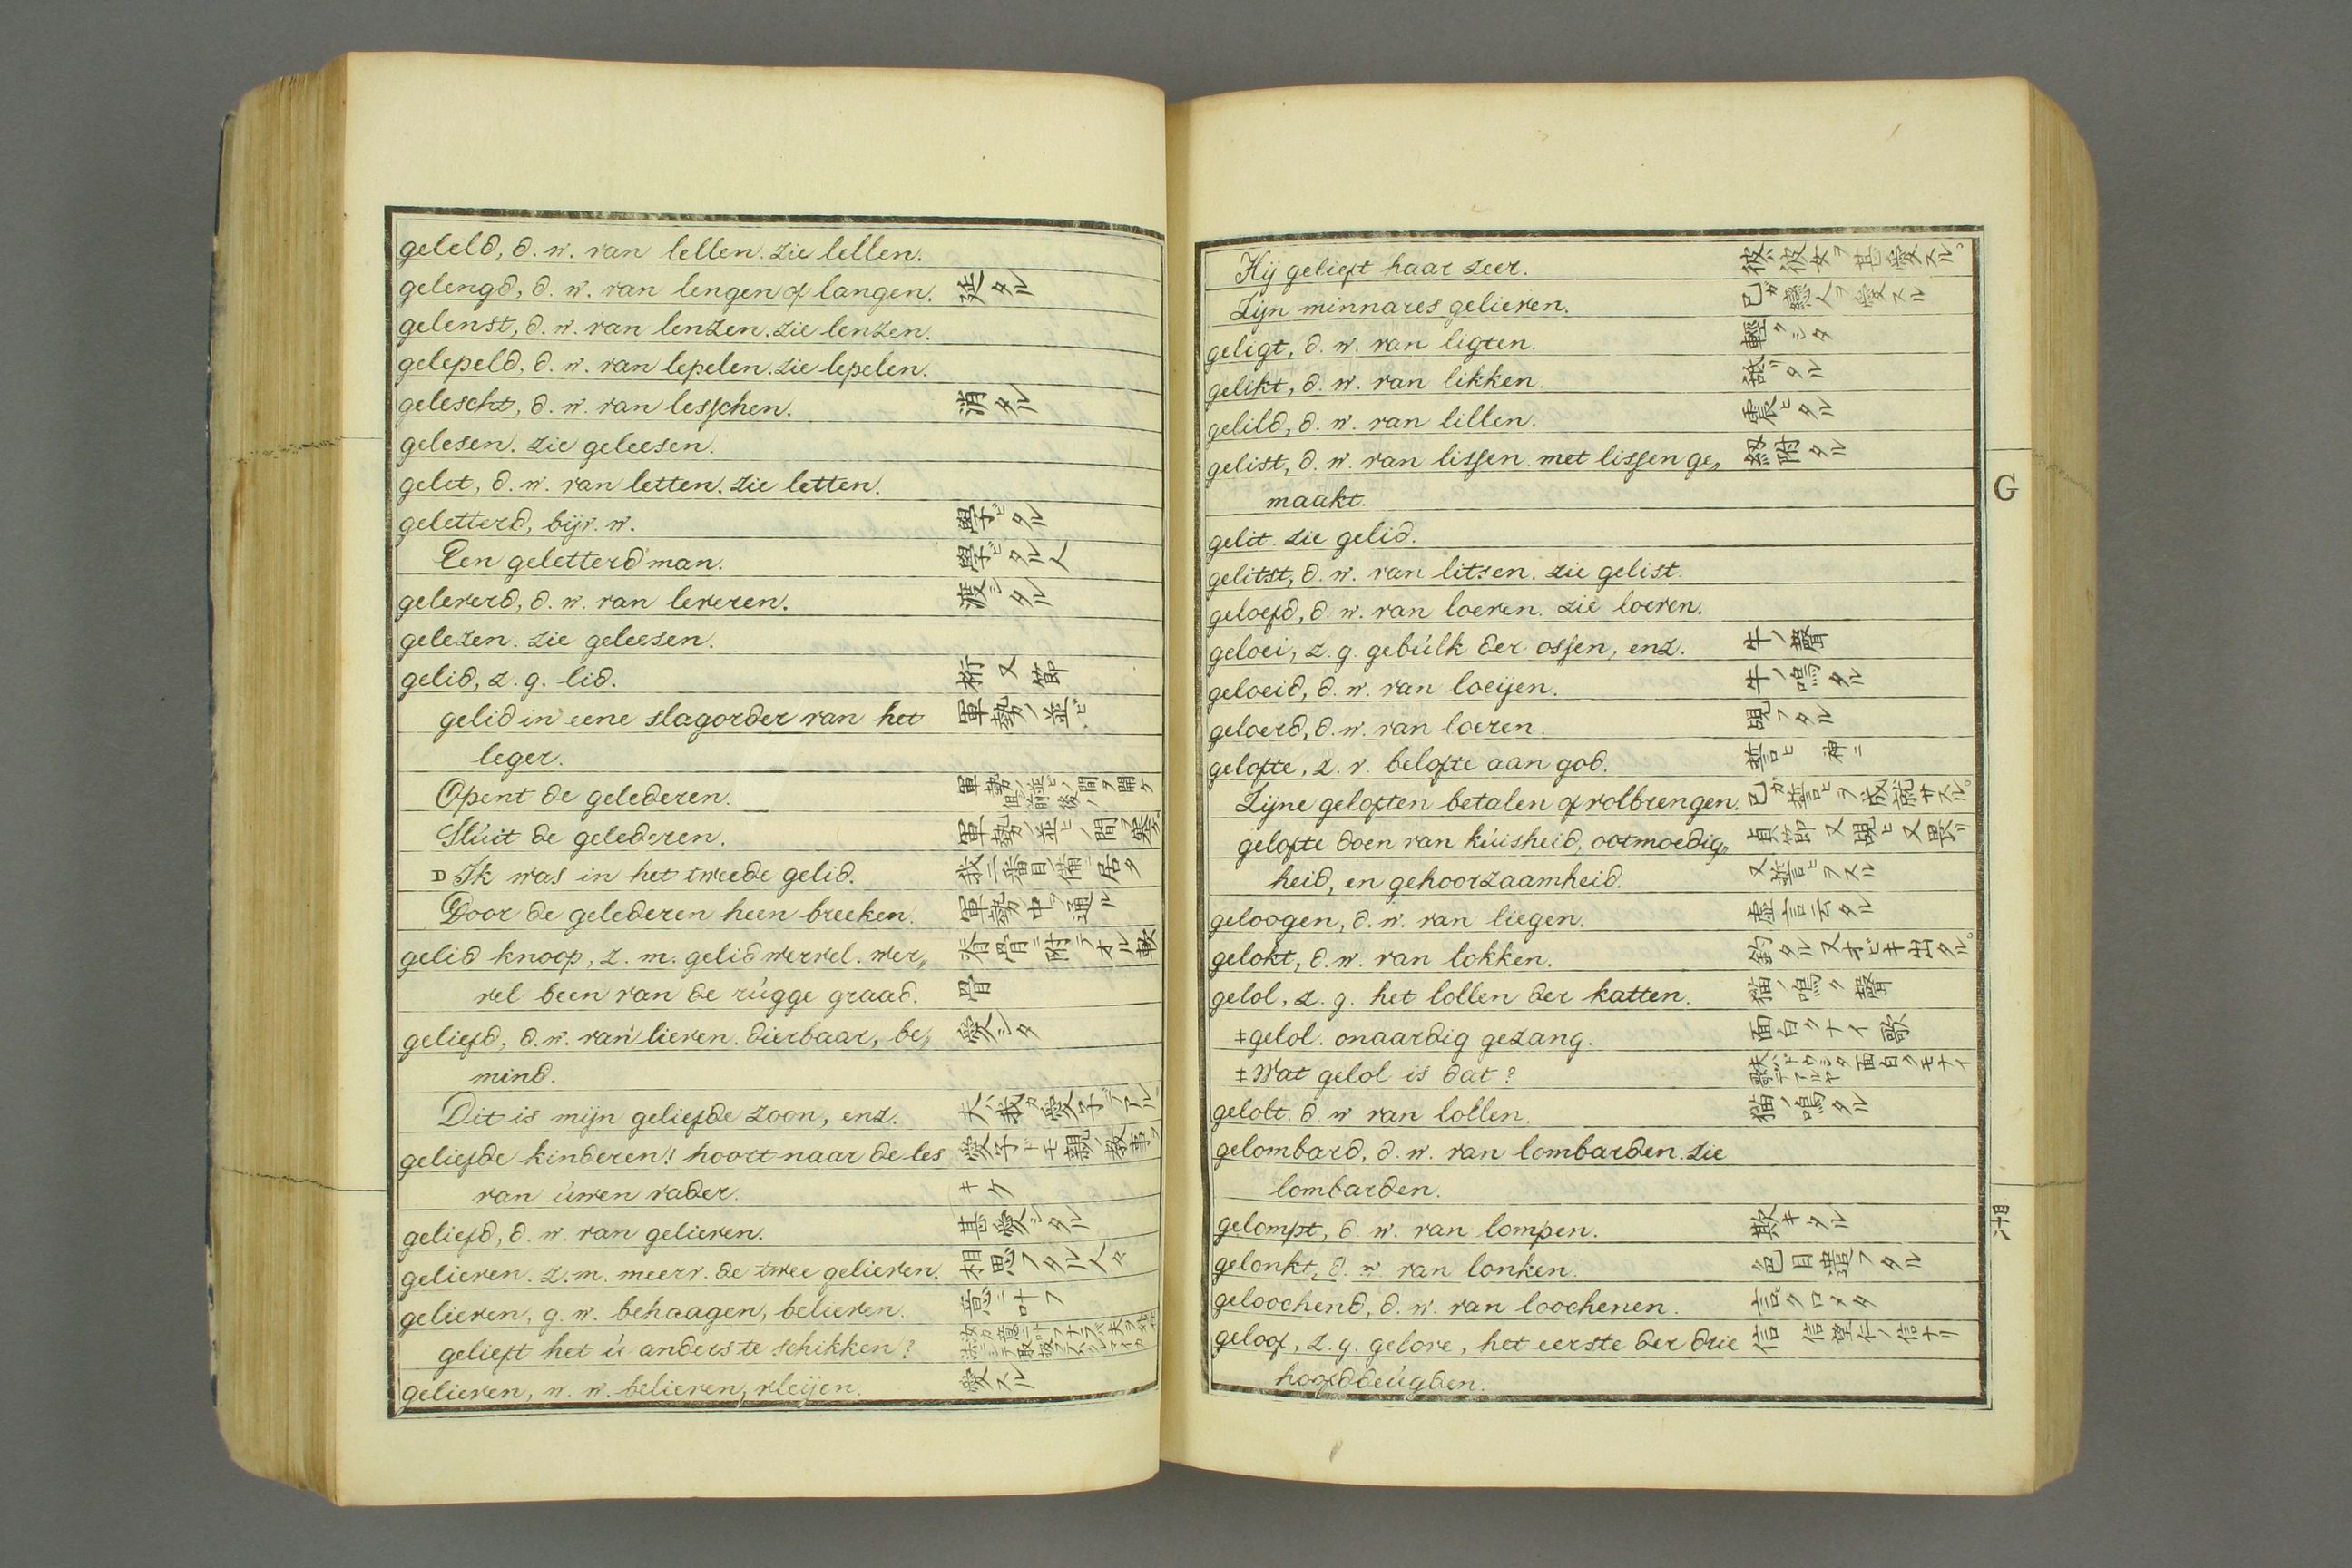 geleld, d. w. van lellen. zie lellen.
gelengd, d. w. van lengen of langen. 延タル
gelenst, d. w. van lenzen. zie lenzen.
gelepeld, d. w. van lepelen. zie lepelen.
gelescht, d. w. van lesschen. 消タル
gelesen. zie geleesen.
gelet, d. w. van letten. zie letten.
geletterd, bijv. w. 學ビタル
Een geletterd man. 學ビタル人
geleverd, d. w. van leveren. 渡シタル
gelezen. zie geleesen.
gelid, z. g. lid. 桁 又 節
gelid in eene slagorder van het 軍勢ノ並ビ
leger.
Opent de gelederen. 軍勢ノ並ビノ間ヲ開ケ 但前後ノ
Slúit de gelederen. 軍勢ノ並ビノ間ヲ塞ゲ
D Ik was in het tweede gelid. 我二番目ノ備ニ居タ
Door de gelederen heen breeken. 軍勢ノ中ヲ通ル
gelid knoop, z. m. gelid wervel. wer„ 脊骨ニ附テオル軟
vel been van de rúgge graad. 骨
geliefd, d. w. van lieven. dierbaar, be„ 愛シタ
mind.
Dit is mijn geliefde zoon, enz. 夫ハ我ガ愛子デアル
geliefde kinderen! hoort naar de les 愛子ドモ親ノ教事ヲ
van úwen vader. キケ
geliefd, d. w. van gelieven. 甚愛シタル
gelieven. z. m. meerv. de twee gelieven. 相思フタル人々
gelieven, g. w. behaagen, believen. 意ニ叶フ
gelieft het ú anders te schikken?
gelieven, w. w. believen, vleijen. 愛スル
Hij gelieft haar zeer. 彼ハ彼女ヲ甚愛スル。
Zijn minnares gelieven. 己ガ戀人ヲ愛スル
geligt, d. w. van ligten. 輕クシタ
gelikt, d. w. van likken. 舐リタル
gelild, d. w. van lillen. 震ヒタル
gelist, d. w. van lissen. met lissen ge„ 附タル
maakt.
gelit. zie gelid.
gelitst, d. w. van litsen. zie gelist.
geloefd, d. w. van loeven. zie loeven.
geloei, z. g. gebúlk der ossen, enz. 牛ノ聲
geloeid, d. w. van loeijen. 牛ノ鳴タル
geloerd, d. w. van loeren. 覗フタル
gelofte, z. v. belofte aan god. 誓ヒ 神ニ
Zijne geloften betalen of volbrengen. 己ガ誓ヒヲ成就サスル。
gelofte doen van kúisheid, ootmoedig„ 貞節 又
heid, en gehoorzaamheid. 又誓ヒヲスル
geloogen, d. w. van liegen. 虚言云タル
gelokt, d. w. van lokken. 釣タル又オビキ出タル。
gelol, z. g. het lollen der katten. 猫ノ鳴ク聲
‡gelol. onaardig gezang. 面白クナイ歌
‡Wat gelol is dat? 夫ハドウシタ面白クモナイ歌デアルヤ
gelolt. d. w. van lollen. 猫ノ鳴タル
gelombard, d. w. van lombarden. zie
lombarden.
gelompt, d. w. van lompen. 欺キタル
gelonkt, d. w. van lonken. 色目遣フタル
geloochend, d. w. van loochenen. 言クロメタ
geloof, z. g. gelove, het eerste der drie 信 信望仁ノ信ナリ
hoofddeúgden.
G